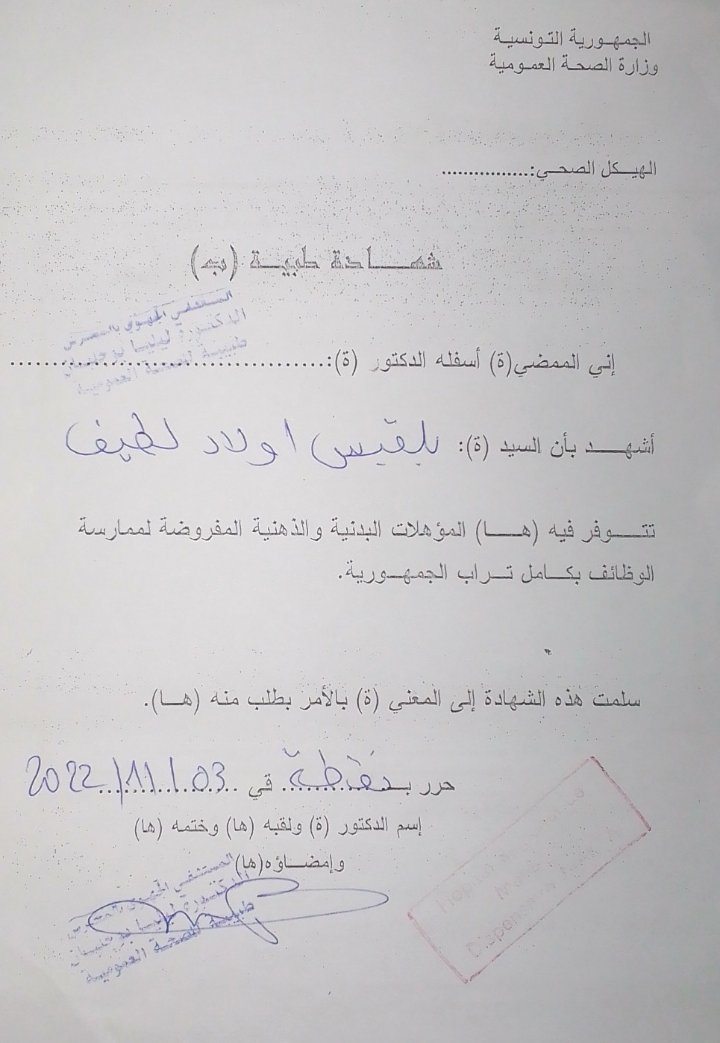 الجمهورية التونسية
وزارة الصحة العمومية
الهيكل الصحي:................
شهادة طبية (ب)
المستشفى الجهوي بالمحرس
الدكتورة لينا بو
طبيبة للصحة العمومية
إني الممضي(ة) أسفله الدكتور (ة):................................................
أشهد بأن السيد (ة): بلقيس اولاد لطيف
تتوفر فيه (ها) المؤهلات البدنية والذهنية المفروضة لممارسة
الوظائف بكامل تراب الجمهورية.
سلمت هذه الشهادة إلى المعني (ة) بالأمر بطلب منه (ها).
حرر بـ نقطة في 2022/11/03
إسم الدكتور (ة) ولقبه (ها) وختمه (ها)
وإمضاؤه(ها)
المستشفى الجهوي بالمحرس
الدكتورة لينا بو
طبيبة للصحة العمومية